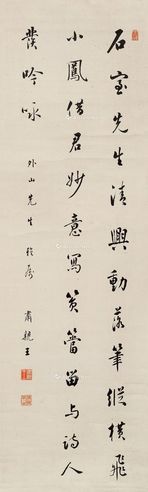 石室先生清興動落筆縱橫飛
小鳳借君妙意寫篔簹留与詩人
發吟咏
外山先生
肅親王